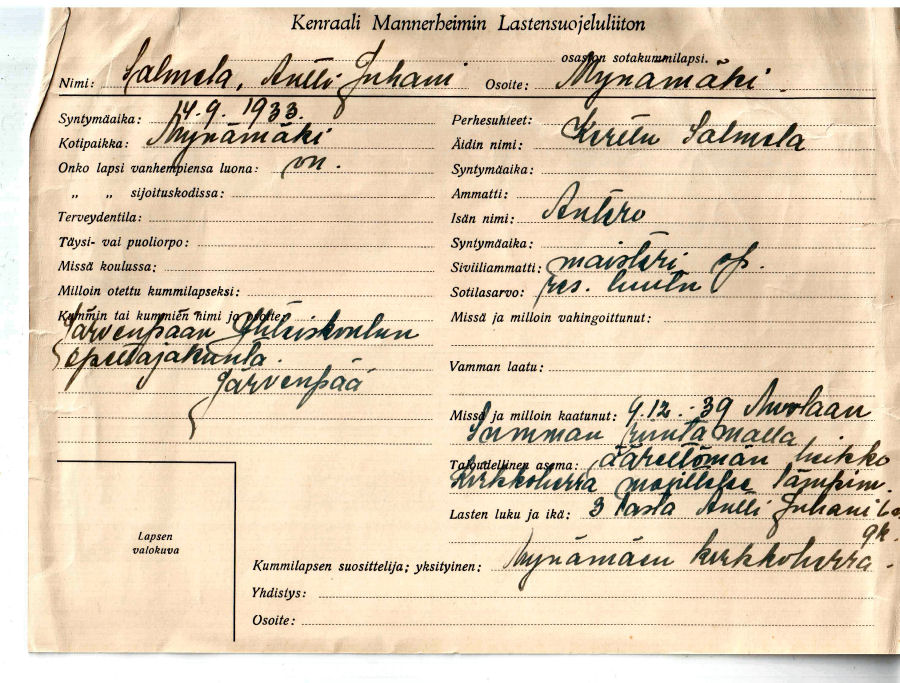 Kenraali Mannerheimin Lastensuojeluliiton
osaston sotakummilapsi.
Nimi: Salmela, Antti Juhani Osoite: Mynämäki.
Syntymäaika: 14.9. 1933.
Kotipaikka: Mynämäki
Onko lapsi vanhempiensa luona: on.
„ „ sijoituskodissa:
Terveydentila:
Täysi- vai puoliorpo:
Missä koulussa:
Milloin otettu kummilapseksi:
Kummin tai kummien nimi ja osoite:
Järvenpään Yhteiskoulun
opettajakunta.
Järvenpää
Perhesuhteet:
Äidin nimi: Kerttu Salmela
Syntymäaika:
Ammatti:
Isän nimi: Antero
Syntymäaika:
Siviiliammatti: maisteri op.
Sotilasarvo: res. luutn
Missä ja milloin vahingoittunut:
Vamman laatu:
Missä ja milloin kaatunut: 9.12.-39 Muolaan
Summan rintamalla
Taloudellinen asema: äärettömän heikko
Kirkkoherra
Lasten luku ja ikä: 3 lasta Antti Juhani
Lapsen
valokuva
Kummilapsen suosittelija; yksityinen: Mynämäen kirkkoherra.
Yhdistys:
Osoite: